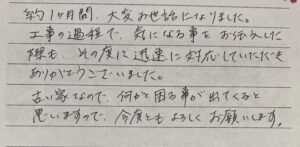 約1ヶ月間、大変お世話になりました。
工事の過程で、気になる事をお伝えした
際も、その度に迅速に対応していただき
ありがとうございました。
古い家なので、何かと困る事が出てくると
思いますので、今度ともよろしくお願いします。